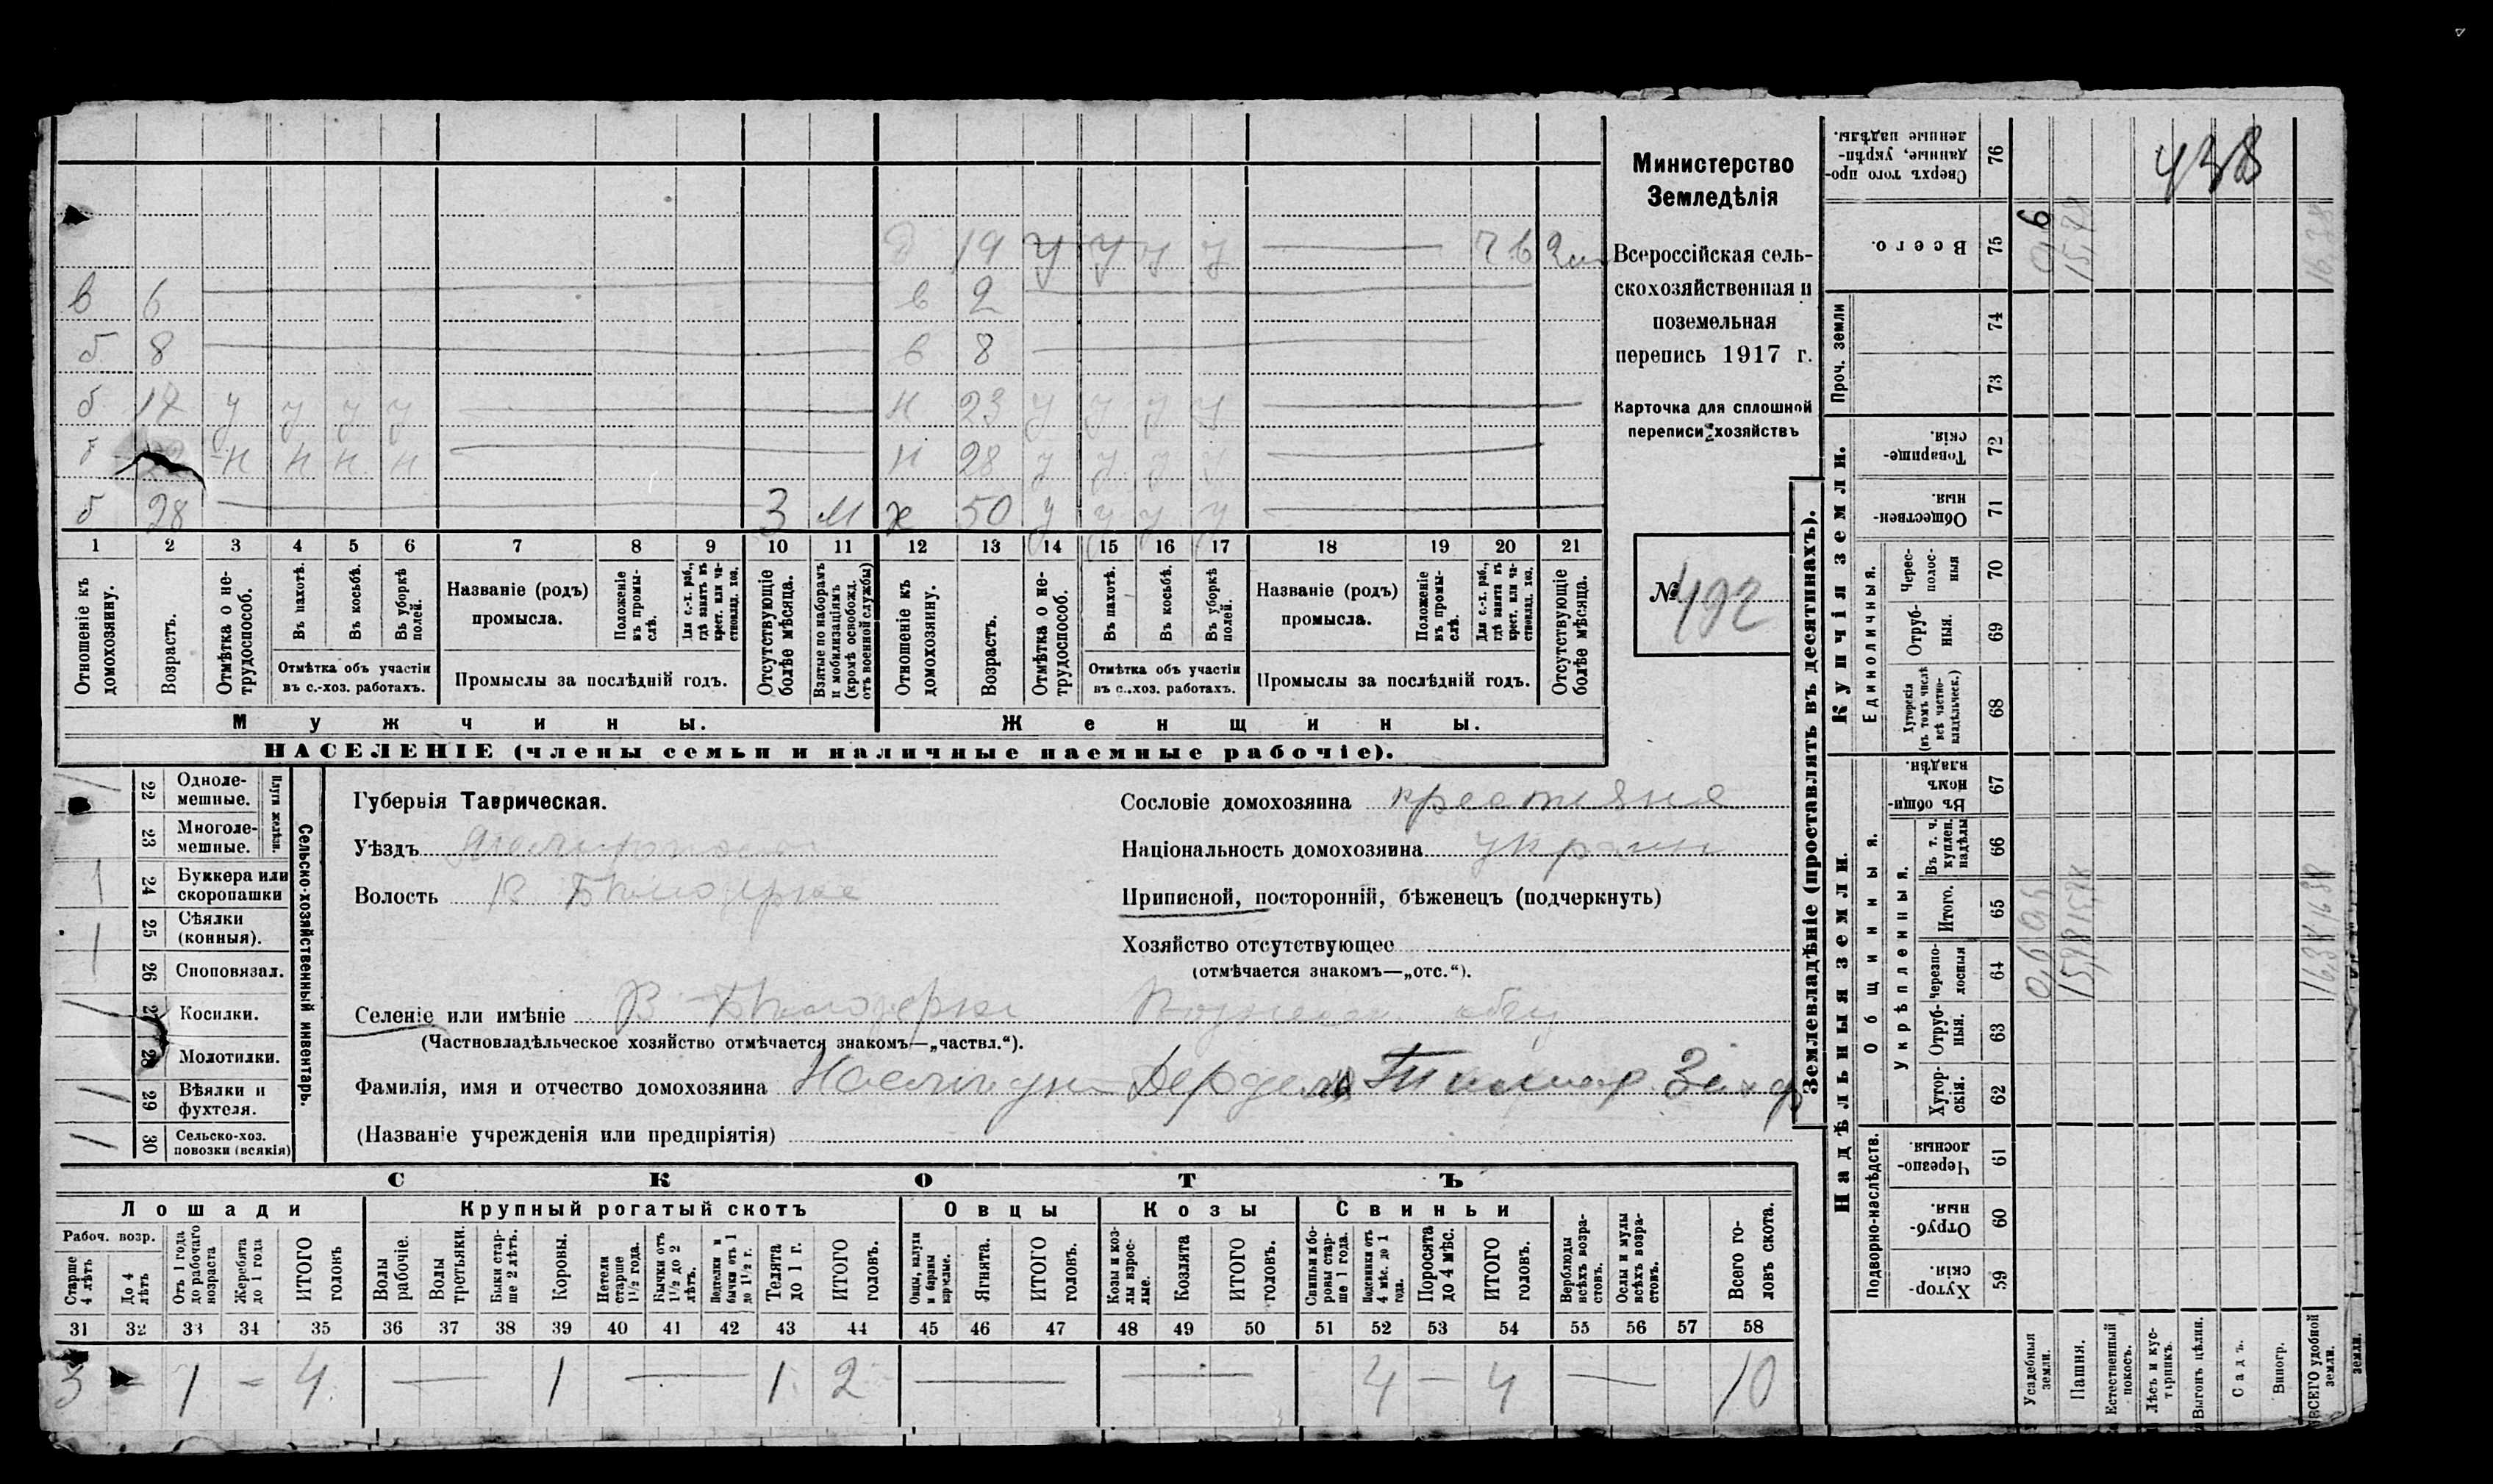 д 19 у у у у
в 6 в 2
б 8 в 8
б 17 у у у у н 23 у у у у
н н н н н 28 у у у у
б 28 3 М ж 50 у у у у
1 2 3 4 5 6 7 8 9 10 11 12 13 14 15 16 17 18 19 20 21
Отношеніе къ домохозяину.
Возрастъ.
Отмѣтка о нетрудоспособ.
Въ пахотѣ.
Въ косьбѣ.
Въ уборкѣ полей.
Отмѣтка объ участіи въ с.-хоз. работахъ.
Названіе (родъ) промысла.
Положеніе въ промыслѣ.
Для с.-х. раб., гдѣ занятъ въ крест. или частновлад. хоз.
Промыслы за послѣдній годъ.
Отсутствующіе болѣе мѣсяца.
Взятые по наборамъ и мобилизаціямъ (кромѣ освобожд. отъ военной службы)
Отношеніе къ домохозяину.
Возрастъ.
Отмѣтка о нетрудоспособ.
Въ пахотѣ.
Въ косьбѣ.
Въ уборкѣ полей.
Отмѣтка объ участіи въ с.-хоз. работахъ.
Названіе (родъ) промысла.
Положеніе въ промыслѣ.
Для с.-х. раб., гдѣ занята въ крест. или частновлад. хоз.
Промыслы за послѣдній годъ.
Отсутствующіе болѣе мѣсяца.
Мужчины. Женщины.
НАСЕЛЕНІЕ (члены семьи и наличные наемные рабочіе).
Министерство
Земледѣлія
Всероссійская сель-
скохозяйственная и
поземельная
перепись 1917 г.
Карточка для сплошной
переписи хозяйствъ
№ 492
Сельско-хозяйственный инвентарь.
Плуги желѣзн.
22 Одноле-мешные.
23 Многоле-мешные.
1 24 Буккера или скоропашки
1 25 Сѣялки (конныя).
26 Сноповязал.
27 Косилки.
28 Молотилки.
29 Вѣялки и фухтеля.
30 Сельско-хоз. повозки (всякія)
Губернія Таврическая.
Уѣздъ
Волость В Бѣлозерка
Селеніе или имѣніе В Бѣлозерка
(Частновладѣльческое хозяйство отмѣчается знакомъ—„частвл.“).
Фамилія, имя и отчество домохозяина
(Названіе учрежденія или предпріятія)
Сословіе домохозяина крестьяне
Національность домохозяина украин
Приписной, посторонній, бѣженецъ (подчеркнуть)
Хозяйство отсутствующее
(отмѣчается знакомъ—„отс.“).
СКОТЪ
Лошади Крупный рогатый скотъ Овцы Козы Свиньи
Рабоч. возр.
Старше 4 лѣтъ
До 4 лѣтъ
Отъ 1 года до рабочаго возраста
Жеребята до 1 года
ИТОГО головъ
Волы рабочіе.
Волы третьяки.
Быки старше 2 лѣтъ.
Коровы.
Нетели старше 1½ года.
Бычки отъ 1½ до 2 лѣтъ.
Подтелки и бычки отъ 1 до 1½ г.
Телята до 1 г.
ИТОГО головъ.
Овцы, валухи и бараны взрослые.
Ягнята.
ИТОГО головъ.
Козы и козлы взрослые.
Козлята
ИТОГО головъ.
Свиньи и боровы старше 1 года.
Подсвинки отъ 4 мѣс. до 1 года.
Поросята до 4 мѣс.
ИТОГО головъ.
Верблюды всѣхъ возрастовъ.
Ослы и мулы всѣхъ возрастовъ.
Всего головъ скота.
31 32 33 34 35 36 37 38 39 40 41 42 43 44 45 46 47 48 49 50 51 52 53 54 55 56 57 58
3 – 1 – 4 — 1 — 1 2 — — 4 – 4 — 10
Землевладѣніе (проставлять въ десятинахъ).
Сверхъ того проданные, укрѣпленные надѣлы. 76
438
Всего. 75 15,78 16,38
Проч. земли
74
73
Купчія земли.
Товарищескія. 72
Общественныя. 71
Единоличныя.
Черес-полос-ныя 70
Отруб-ныя. 69
Хуторскія (въ томъ числѣ всѣ частновладѣльческ.) 68
Надѣльныя земли.
Общинныя.
Въ общинномъ владѣн. 67
Укрѣпленныя.
Въ т. ч. куплен. надѣлы 66
Итого. 65 15,78 16,38
Черезпо-лосныя 64 15,78 16,38
Отруб-ныя. 63
Хутор-скія. 62
Подворно-наслѣдств.
Черезпо-лосныя. 61
Отруб-ныя. 60
Хутор-скія. 59
Усадебныя земли.
Пашня.
Естественный покосъ.
Лѣсъ и кустарникъ.
Выгонъ цѣлин.
Садъ.
Виногр.
ВСЕГО удобной земли.
земли.